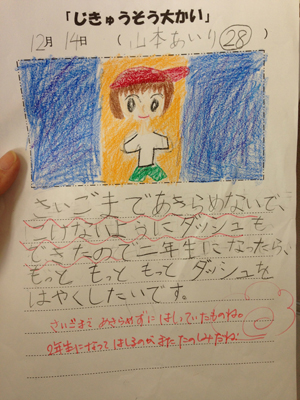 「じきゅうそう大かい」
12月14日 (山本あいり㉘)
さいごまであきらめないで、
こけないようにダッシュも
できたので二年生になったら、
もっともっともっとダッシュを
はやくしたいです。
さいごまであきらめずにはしっていたものね。
2年生になってはしるのがまたたのしみだね